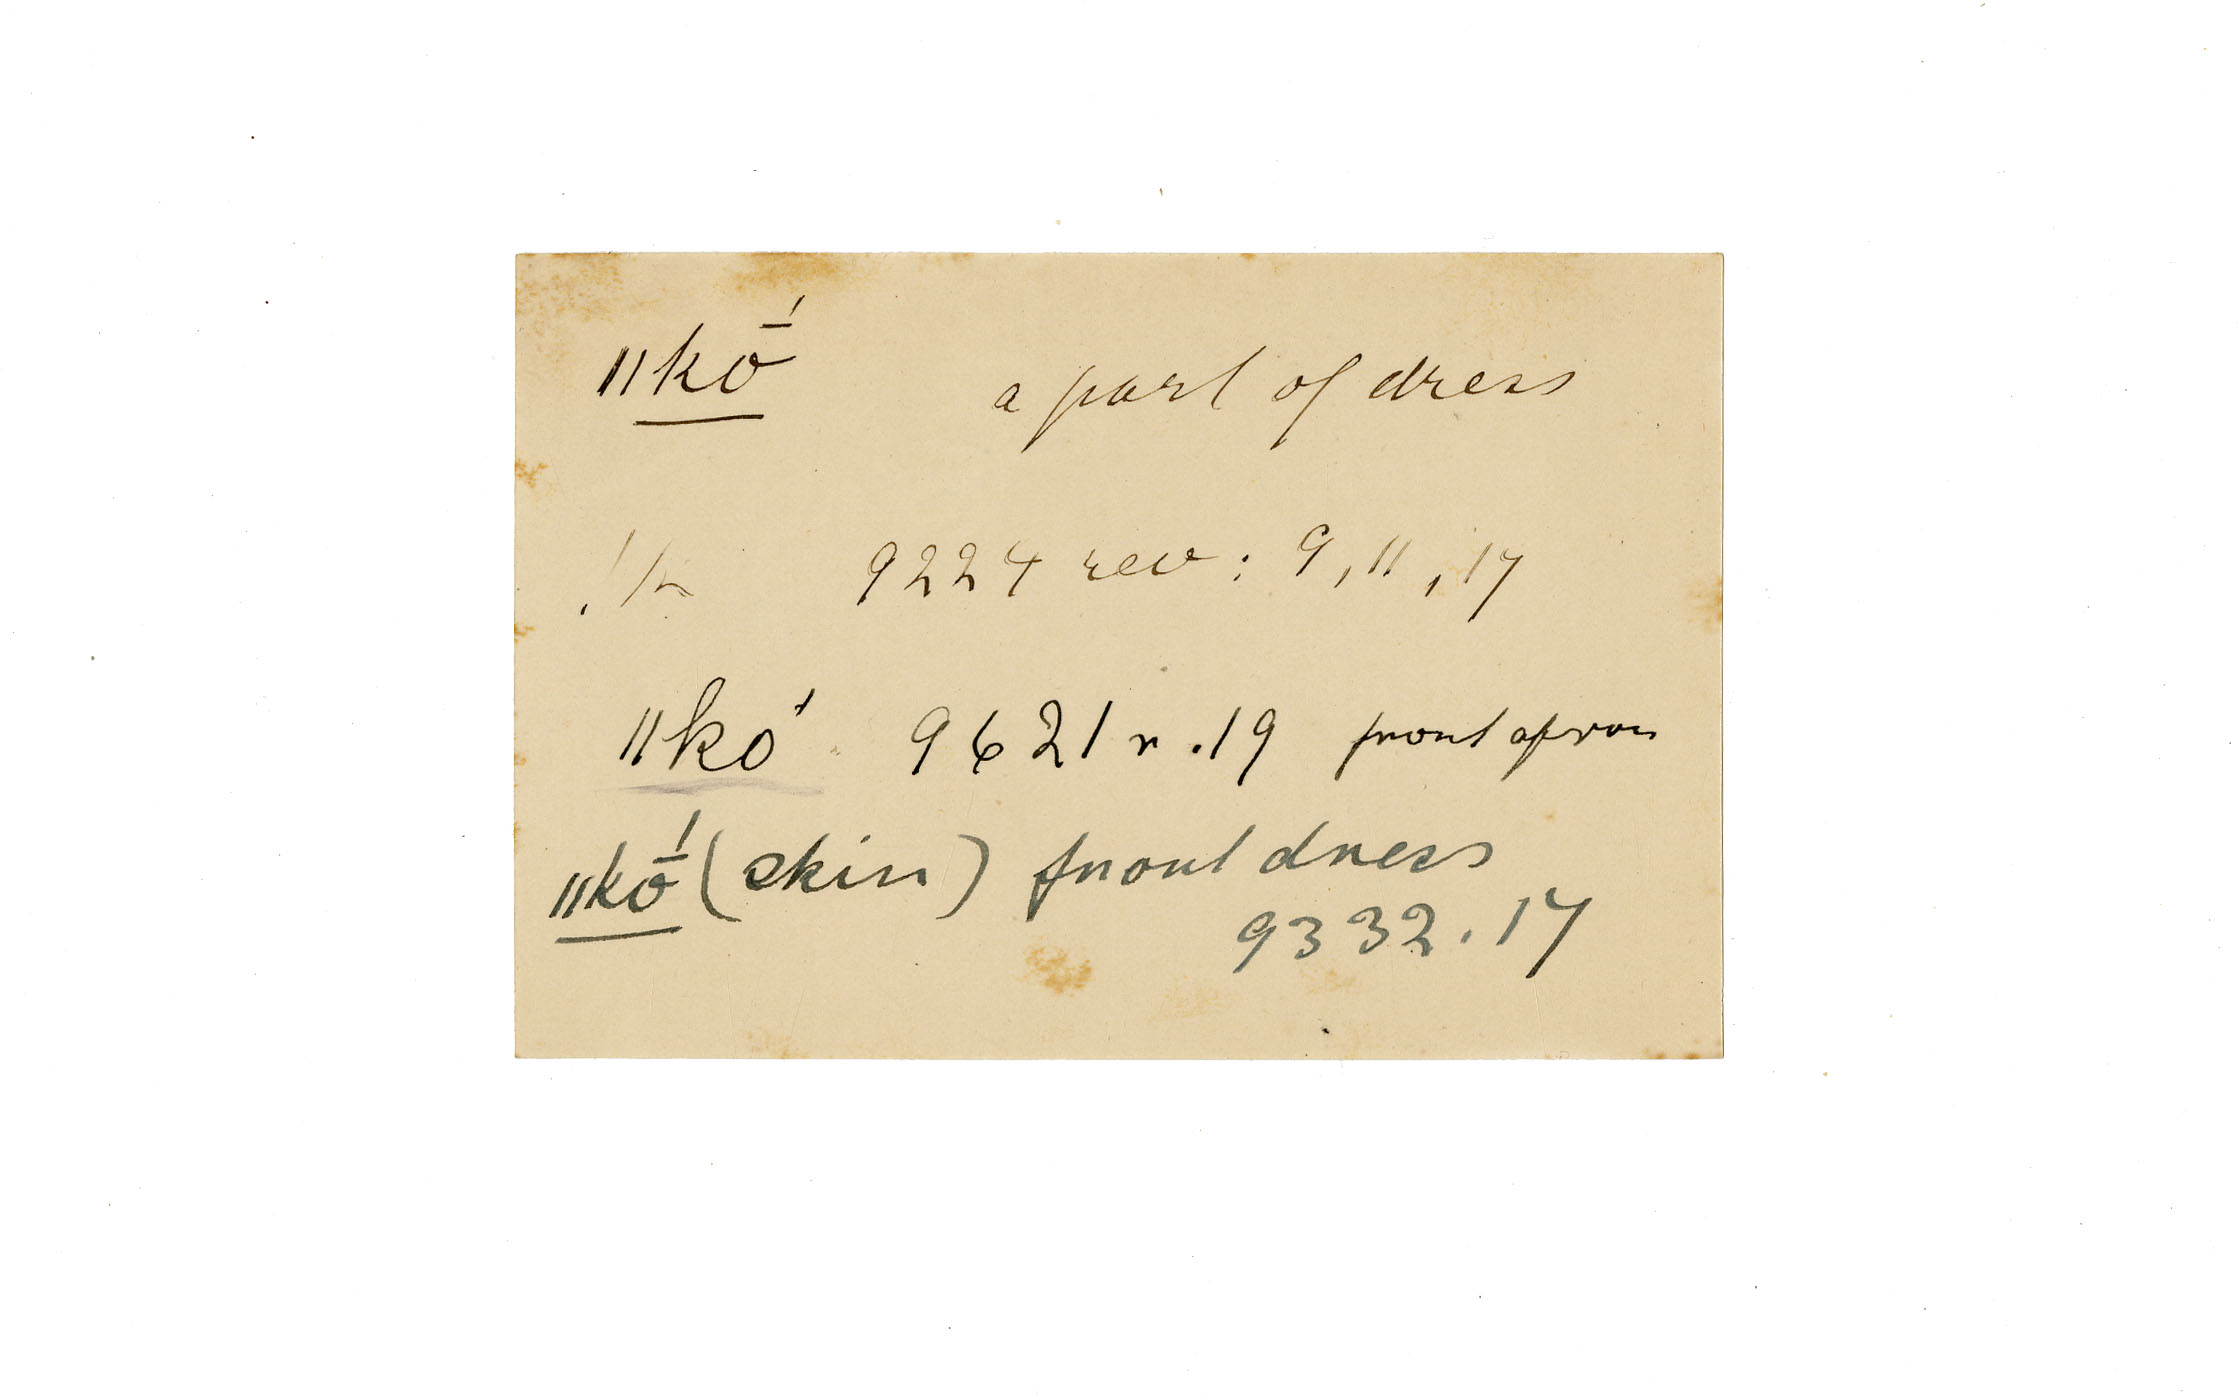 ǁkṓ a part of dress
9224 rev: 9, 11, 17
ǁkó 9621 r. 19 front apron
ǁkṓ (skin) front dress
9332. 17